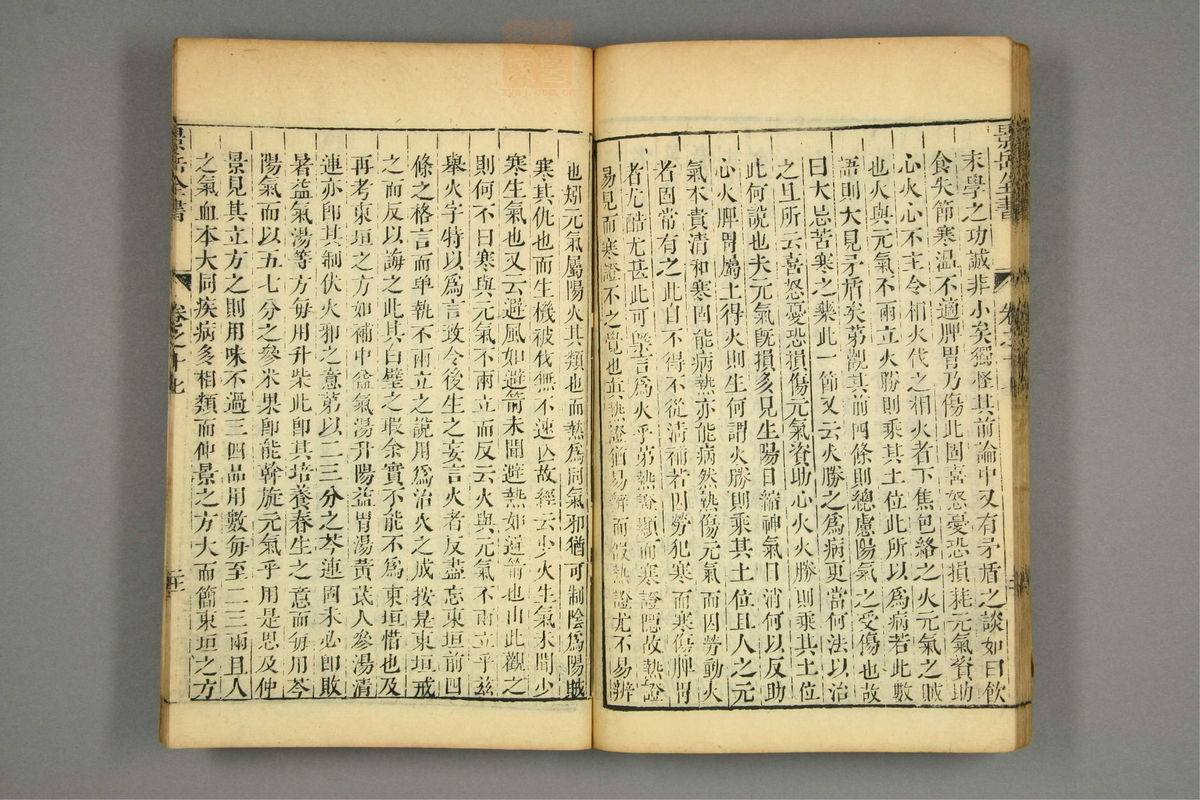 末學之功誠非小矣獨怪其前論中又有矛盾之談如曰飲
食失節寒温不適脾胃乃傷此因喜怒憂恐損耗元氣資助
心火心不主令相火代之相火者下焦包絡之火元氣之賊
也火與元氣不兩立火勝則乘其土位此所以為病若此數
語則大見矛盾矣第觀其前四條則總慮陽氣之受傷也故
曰大忌苦寒之藥此一節又云火勝之為病更當何法以治
之且所云喜怒憂恐損傷元氣資助心火火勝則乘其土位
此何說也夫元氣旣損多見生陽日縮神氣日消何以反助
心火脾胃屬土得火則生何謂火勝則乘其土位且人之元
氣本貴清和寒固能病熱亦能病然熱傷元氣而因勞動火
者固常有之此自不得不從清補若因勞犯寒而寒傷脾胃
者尤酷尤甚此可槩言為火乎第熱證顯而寒證隠故熱證
易見而寒證不之覺也真熱證猶易辨而假熱證尤不易辨
也矧元氣屬陽火其類也而熱為同氣邪猶可制陰為陽賊
寒其仇也而生機被伐無不速亾故經云少火生氣未聞少
寒生氣也又云避風如避箭未聞避熱如避箭也由此觀之
則何不曰寒與元氣不兩立而反云火與元氣不兩立乎兹
舉火字特以為言致令後生之妄言火者反盡忘東垣前四
條之格言而单執不兩立之說用為治火之成按是東垣戒
之而反以誨之此其白璧之瑕余實不能不為東垣惜也及
再考東垣之方如補中益氣湯升陽益胃湯黄芪人參湯清
連亦卽其制伏火邪之意第以二三分之芩連固未必卽敗
暑益氣湯等方每用升柴此卽其培養春生之意而每用芩
陽氣而以五七分之參术果卽能斡旋元氣乎用是思及仲
景見其立方之則用味不過三四品用數每至二三兩且人
之氣血本大同疾病多相類而仲景之方大而簡東垣之方
景岳全書
卷之十七
景岳全書
卷之十七